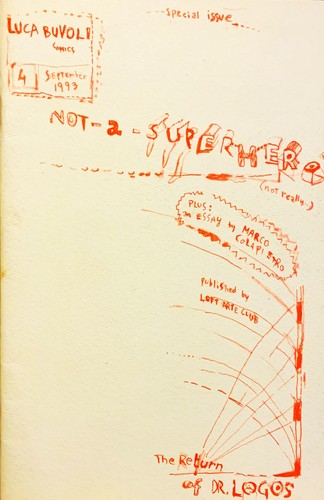 special issue
LUCA BUVOLI
comics
4
September
1993
NOT-a-SUPERHERO
(not really.)
PLUS:
an ESSAY by MARCO
COLAPIETRO
published by
LOFT ARTE CLUB
The Return
of DR. LOGOS